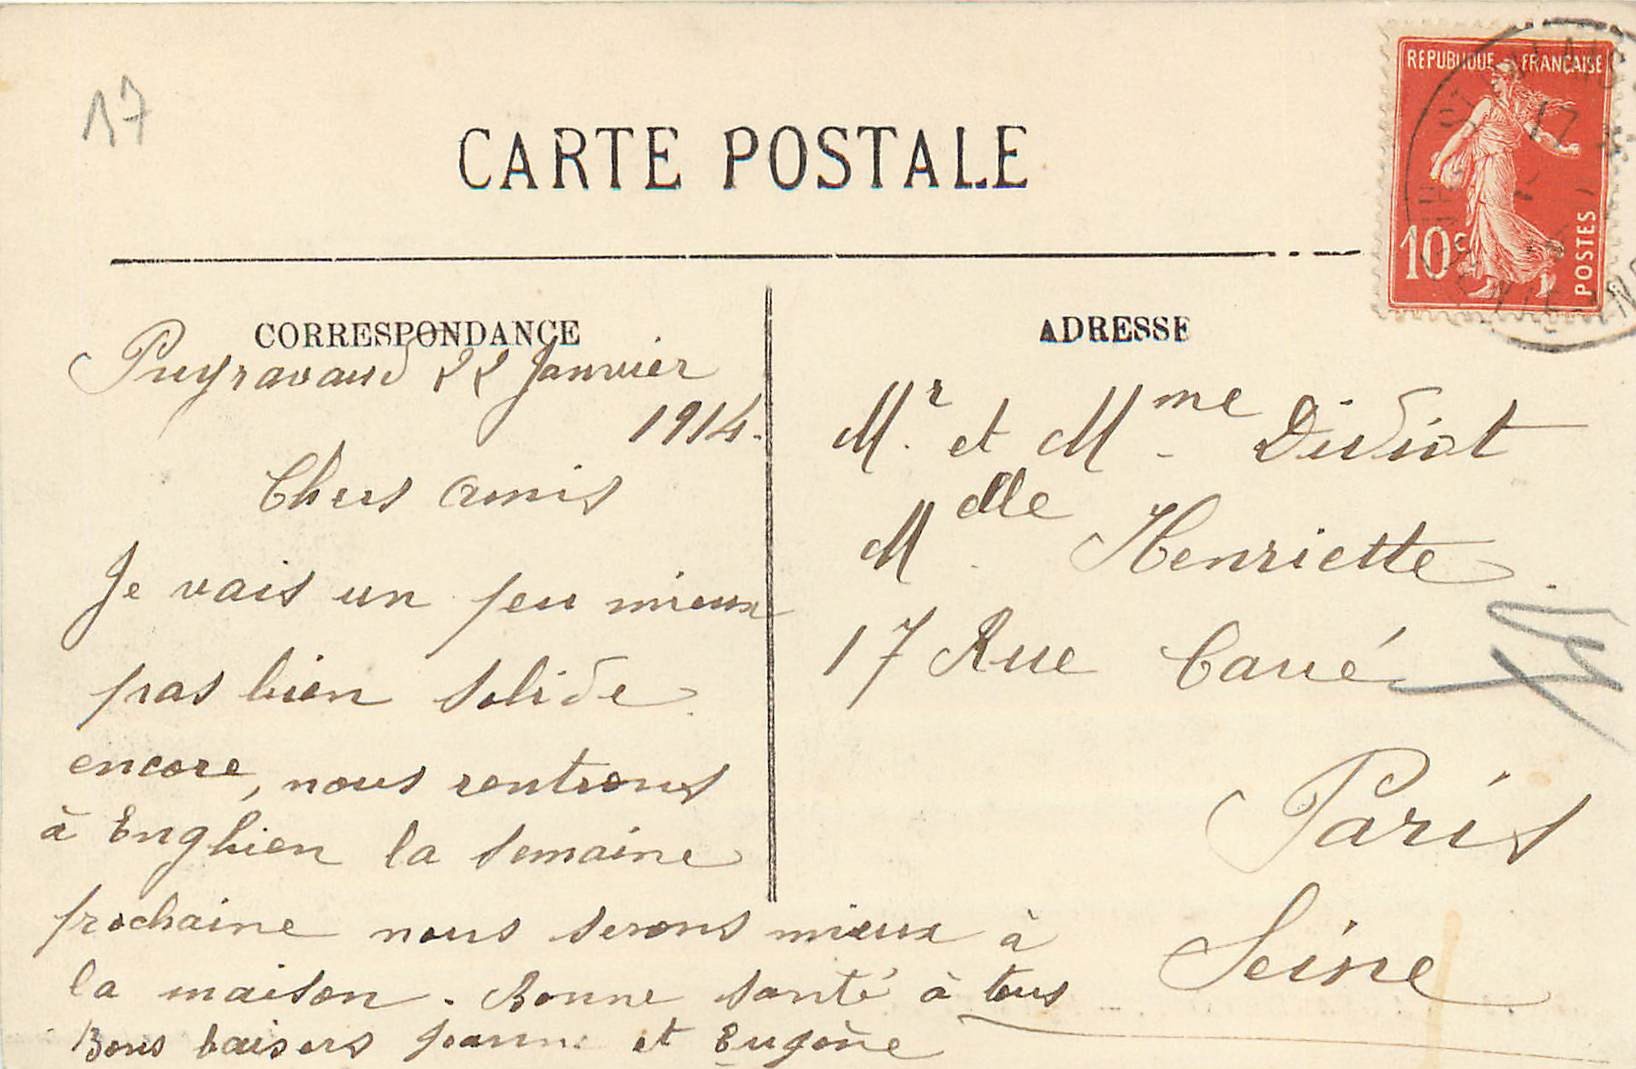 17
CARTE POSTALE
REPUBLIQUE FRANÇAISE
10c
POSTES
CORRESPONDANCE
Puyravaud 22 Janvier
1914.
Chers amis
Je vais un peu mieux
pas bien solide
encore, nous rentrons
à Enghien la semaine
prochaine nous serons mieux à
la maison. Bonne santé à tous
Bons baisers Jeanne et Eugène
ADRESSE
Mr et Mme Divist
Mdlle Henriette
17 Rue Carré
Paris
Seine